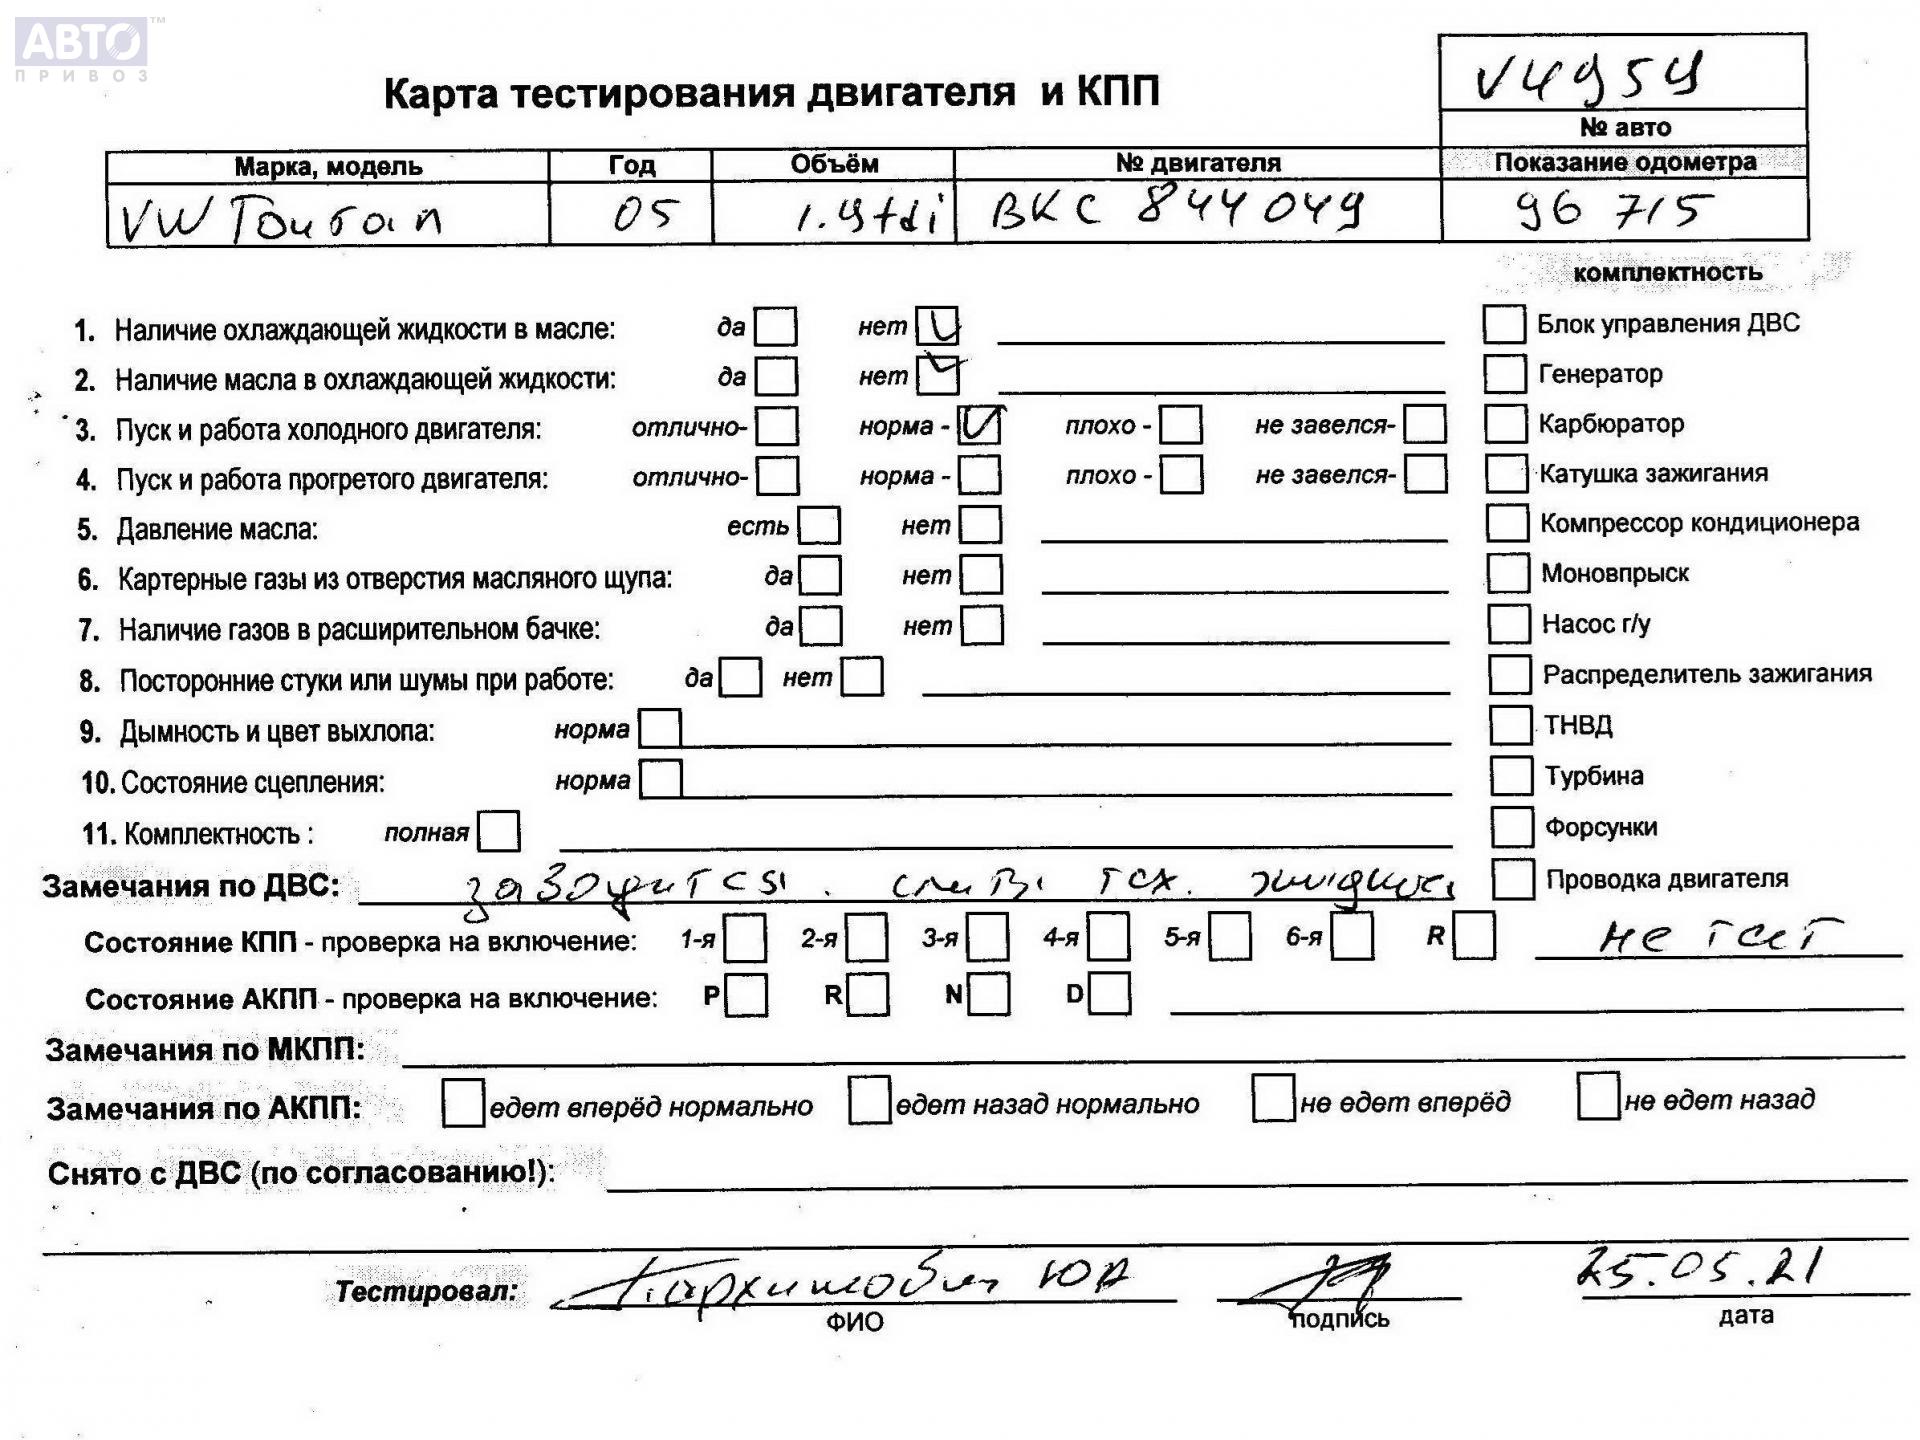 АВТО™
ПРИВОЗ
V4959
Карта тестирования двигателя и КПП
№ авто
Марка, модель Год Объём № двигателя Показание одометра
VW Touran 05 1.9tdi BKC 844049 96 715
комплектность
1. Наличие охлаждающей жидкости в масле: да нет Блок управления ДВС
2. Наличие масла в охлаждающей жидкости: да нет Генератор
3. Пуск и работа холодного двигателя: отлично- норма - плохо - не завелся- Карбюратор
4. Пуск и работа прогретого двигателя: отлично- норма - плохо - не завелся- Катушка зажигания
5. Давление масла: есть нет Компрессор кондиционера
6. Картерные газы из отверстия масляного щупа: да нет Моновпрыск
7. Наличие газов в расширительном бачке: да нет Насос г/у
8. Посторонние стуки или шумы при работе: да нет Распределитель зажигания
9. Дымность и цвет выхлопа: норма ТНВД
10. Состояние сцепления: норма Турбина
11. Комплектность : полная Форсунки
Замечания по ДВС: заводится. тех. Проводка двигателя
Состояние КПП - проверка на включение: 1-я 2-я 3-я 4-я 5-я 6-я R не тест
Состояние АКПП - проверка на включение: P R N D
Замечания по МКПП:
Замечания по АКПП: едет вперёд нормально едет назад нормально не едет вперёд не едет назад
Снято с ДВС (по согласованию!):
Тестировал: Пархимович ЮА 25.05.21
ФИО подпись дата